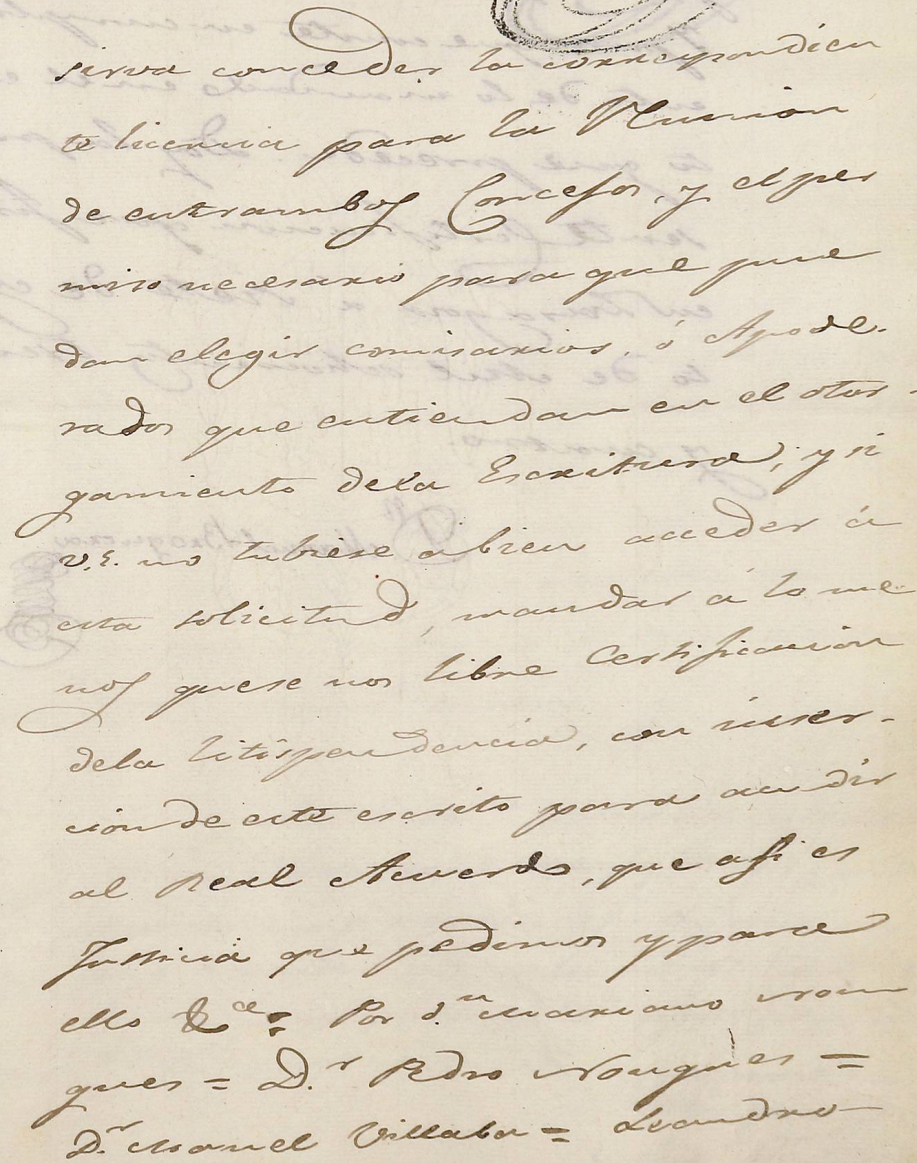 sirva conceder la correspondien
te licencia para la Reunion
de entrambos Concejos, y el per
miso necesario para que pue
dan elegir comisarios, ó Apode-
rados que entiendan en el otor-
gamiento dela Escritura; y si
V.E. no tubiese abien acceder á
esta solicitud, mandar á lo me
nos quese nos libre Certificacion
dela litispendencia, con inser-
cion de este escrito para acudir
al Real Acuerdo, que asi es
Justicia que pedimos y para
ello &ca = Por d.n Mariano Nou
gues = D.r Pedro Nougues =
D.r Manuel Villaba = Leandro